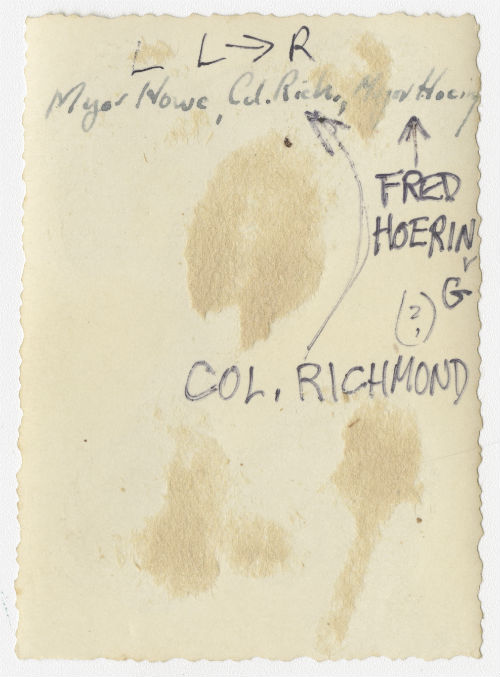 L L → R
Major Howe, Col. Rich., Major Hoering
FRED
HOERIN
G
(?)
COL. RICHMOND